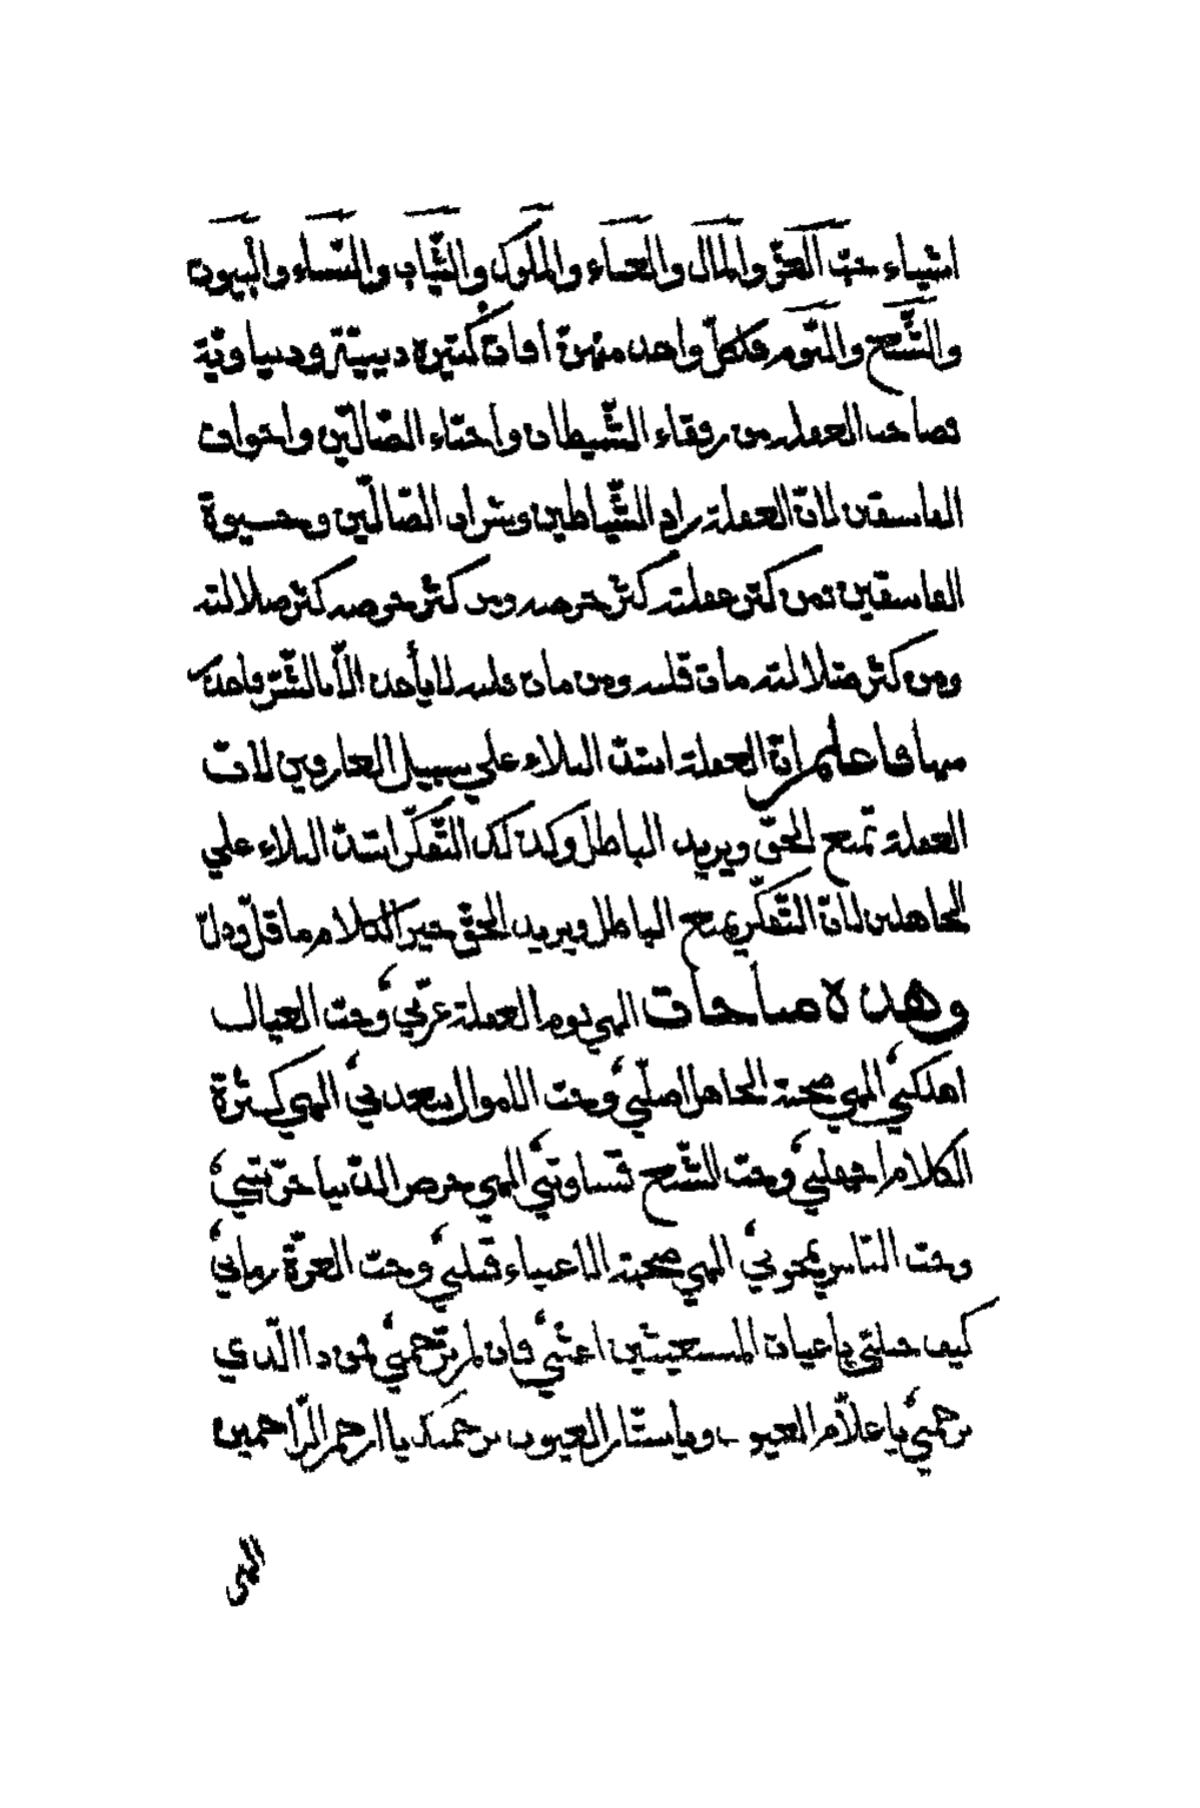 اشياء حبّ العزّ والمال والغناء والملوك والثّياب والنّساء والبيوت
والشّبع والنّوم فلكلّ واحد منهنّ افات كثيرة دينيّة ودنياويّة
فصاحب الغفلة من رفقاء الشّيطان واخبّاء الضّالّين واخوان
الفاسقين لانّ الغفلة زاد الشّياطين وشراب الضّالّين وحسيوة
الفاسقين فمن كثر غفلته كثر حرصه ومن كثر حرصه كثر ضلالته
ومن كثر ضلالته مات قلبه ومن مات قلبه لا يأخذ الّا بالشّرّ ناهذ
منها فاعلم انّ الغفلة اشدّ البلاء علي سبيل العارفين لانّ
الغفلة تمنع الحقّ ويريد الباطل وكذلك التّفكّر اشدّ البلاء علي
الجاهلين لانّ التّفكّر يمنع الباطل ويريد الحقّ خير الكلام ما قلّ ودلّ
وهذه مناجات الهي نوم الغفلة غرّني وحبّ العيال
اهلكني الهي صحبة الجاهل اضلّني وحبّ الاموال ابعدني الهي كثرة
الكلام اجهلني وحبّ الشّبع قساوتني الهي حرص الدّنيا حرّبتني
وحبّ النّاس يمحوني الهي صحبة الاغنياء قسّلني وحبّ العزّة رماني
كيف حيلتي يا غياث المستغيثين اغثني فان لم ترحمني فمن ذا الّذي
يرحمني يا علّام الغيوب ويا ستّار العيوب برحمتك يا ارحم الرّاحمين
الهي